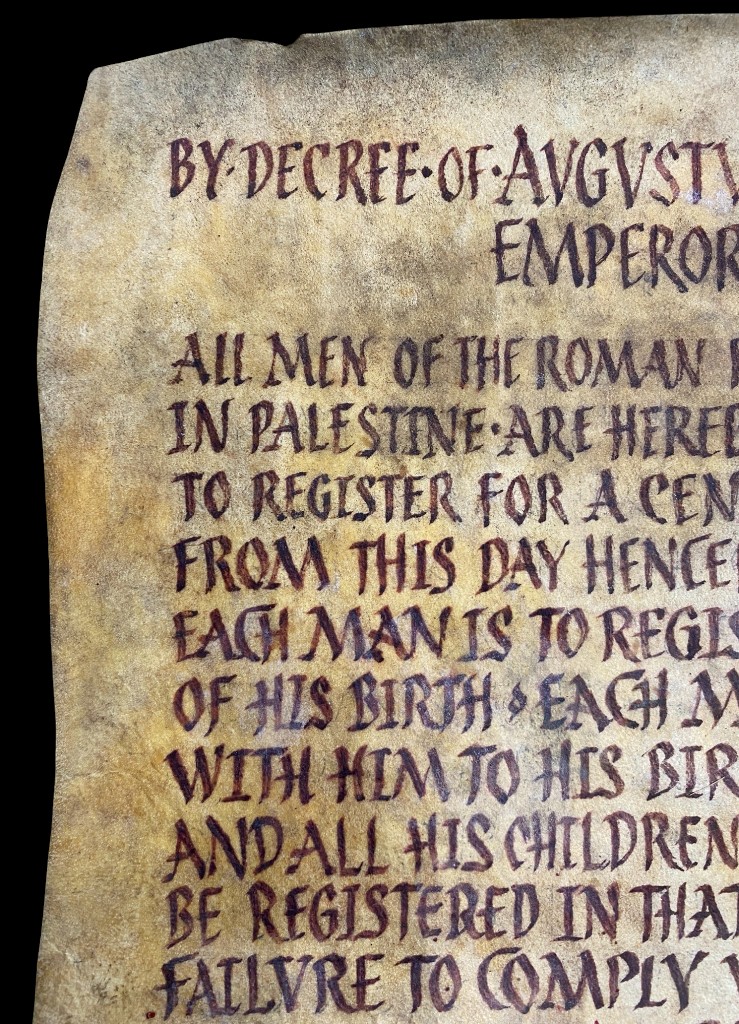 BY·DECREE·OF·AVGVSTV
EMPEROR
ALL MEN OF THE ROMAN
IN PALESTINE·ARE HEREB
TO REGISTER FOR A CEN
FROM THIS DAY HENCE
EACH MAN IS TO REGIS
OF HIS BIRTH · EACH M
WITH HIM TO HIS BIR
AND ALL HIS CHILDREN
BE REGISTERED IN THAT
FAILVRE TO COMPLY